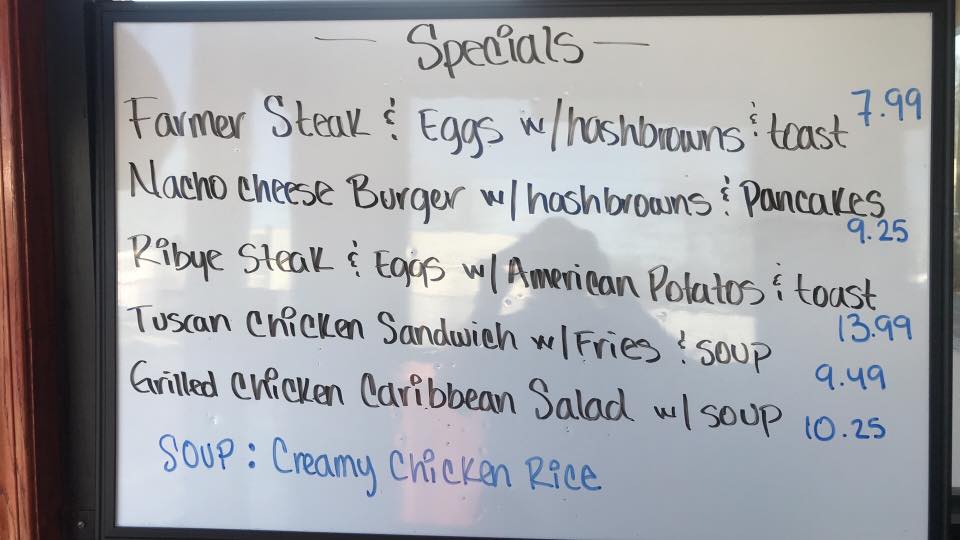 — Specials —
Farmer Steak & Eggs w/hashbrowns & toast 7.99
Nacho cheese Burger w/hashbrowns & Pancakes
9.25
Ribye Steak & Eggs w/American Potatos & toast
13.99
Tuscan Chicken Sandwich w/Fries & soup
9.49
Grilled Chicken Caribbean Salad w/ soup 10.25
Soup: Creamy Chicken Rice